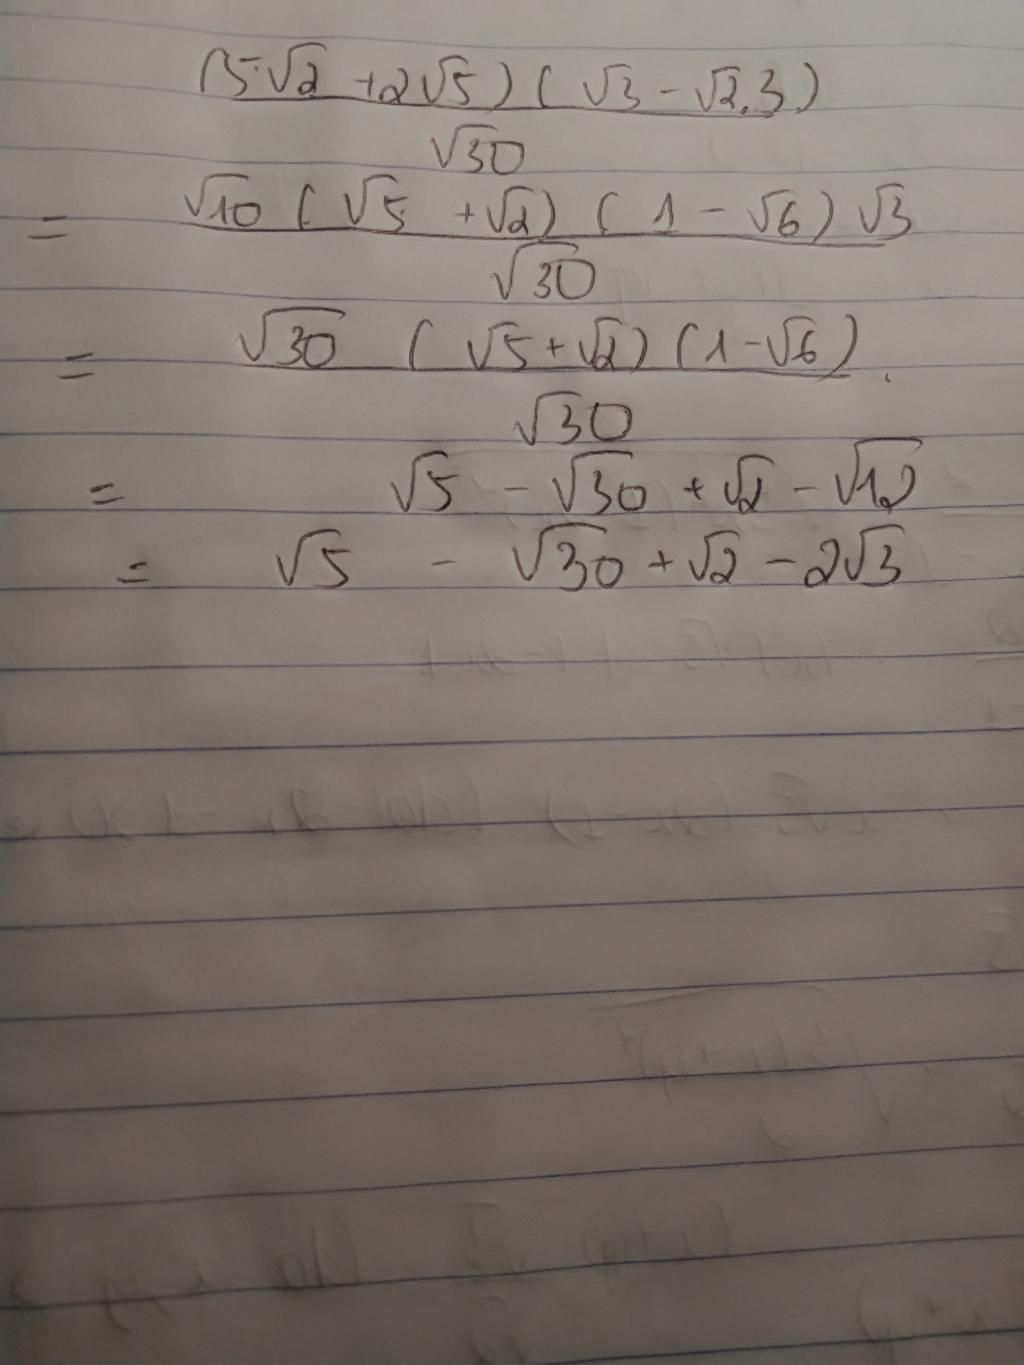 (5·√2 + 2√5) ( √3 - √2.3 )
√30
= √10 ( √5 + √2) ( 1 - √6) √3
√30
= √30 ( √5 + √2) (1 - √6) .
√30
= √5 - √30 + √2 - √12
= √5 - √30 + √2 - 2√3